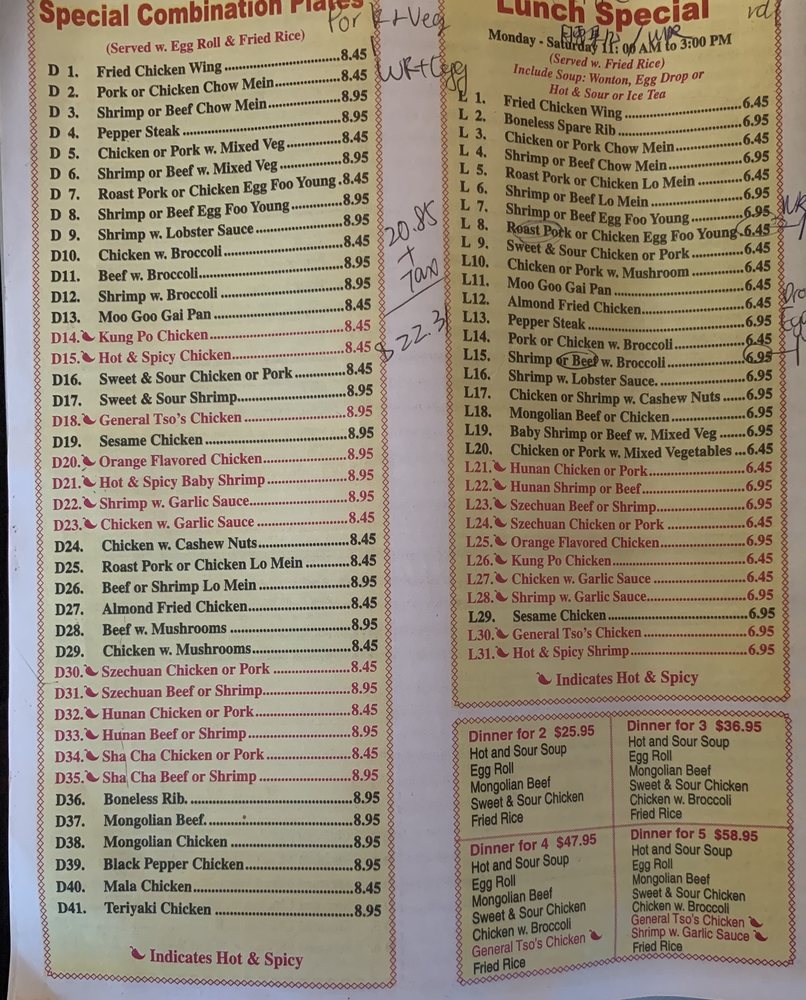 Special Combination Plates
(Served w. Egg Roll & Fried Rice)
D 1. Fried Chicken Wing 8.45
D 2. Pork or Chicken Chow Mein 8.45
D 3. Shrimp or Beef Chow Mein 8.95
D 4. Pepper Steak 8.95
D 5. Chicken or Pork w. Mixed Veg 8.45
D 6. Shrimp or Beef w. Mixed Veg 8.95
D 7. Roast Pork or Chicken Egg Foo Young 8.45
D 8. Shrimp or Beef Egg Foo Young 8.95
D 9. Shrimp w. Lobster Sauce 8.95
D10. Chicken w. Broccoli 8.45
D11. Beef w. Broccoli 8.95
D12. Shrimp w. Broccoli 8.95
D13. Moo Goo Gai Pan 8.45
D14. Kung Po Chicken 8.45
D15. Hot & Spicy Chicken 8.45
D16. Sweet & Sour Chicken or Pork 8.45
D17. Sweet & Sour Shrimp 8.95
D18. General Tso's Chicken 8.95
D19. Sesame Chicken 8.95
D20. Orange Flavored Chicken 8.95
D21. Hot & Spicy Baby Shrimp 8.95
D22. Shrimp w. Garlic Sauce 8.95
D23. Chicken w. Garlic Sauce 8.45
D24. Chicken w. Cashew Nuts 8.45
D25. Roast Pork or Chicken Lo Mein 8.45
D26. Beef or Shrimp Lo Mein 8.95
D27. Almond Fried Chicken 8.45
D28. Beef w. Mushrooms 8.95
D29. Chicken w. Mushrooms 8.45
D30. Szechuan Chicken or Pork 8.45
D31. Szechuan Beef or Shrimp 8.95
D32. Hunan Chicken or Pork 8.45
D33. Hunan Beef or Shrimp 8.95
D34. Sha Cha Chicken or Pork 8.45
D35. Sha Cha Beef or Shrimp 8.95
D36. Boneless Rib. 8.95
D37. Mongolian Beef. 8.95
D38. Mongolian Chicken 8.95
D39. Black Pepper Chicken 8.95
D40. Mala Chicken 8.45
D41. Teriyaki Chicken 8.95
Indicates Hot & Spicy
20.85
+
Tax
$22.3
Lunch Special
Monday - Saturday 11: 00 AM to 3:00 PM
(Served w. Fried Rice)
Include Soup: Wonton, Egg Drop or
Hot & Sour or Ice Tea
L 1. Fried Chicken Wing 6.45
L 2. Boneless Spare Rib 6.95
L 3. Chicken or Pork Chow Mein 6.45
L 4. Shrimp or Beef Chow Mein 6.95
L 5. Roast Pork or Chicken Lo Mein 6.45
L 6. Shrimp or Beef Lo Mein 6.95
L 7. Shrimp or Beef Egg Foo Young 6.95
L 8. Roast Pork or Chicken Egg Foo Young 6.45
L 9. Sweet & Sour Chicken or Pork 6.45
L10. Chicken or Pork w. Mushroom 6.45
L11. Moo Goo Gai Pan 6.45
L12. Almond Fried Chicken 6.45
L13. Pepper Steak 6.95
L14. Pork or Chicken w. Broccoli 6.45
L15. Shrimp or Beef w. Broccoli 6.95
L16. Shrimp w. Lobster Sauce. 6.95
L17. Chicken or Shrimp w. Cashew Nuts 6.95
L18. Mongolian Beef or Chicken 6.95
L19. Baby Shrimp or Beef w. Mixed Veg 6.95
L20. Chicken or Pork w. Mixed Vegetables 6.45
L21. Hunan Chicken or Pork 6.45
L22. Hunan Shrimp or Beef 6.95
L23. Szechuan Beef or Shrimp 6.95
L24. Szechuan Chicken or Pork 6.45
L25. Orange Flavored Chicken 6.95
L26. Kung Po Chicken 6.45
L27. Chicken w. Garlic Sauce 6.45
L28. Shrimp w. Garlic Sauce 6.95
L29. Sesame Chicken 6.95
L30. General Tso's Chicken 6.95
L31. Hot & Spicy Shrimp 6.95
Indicates Hot & Spicy
Dinner for 2 $25.95
Hot and Sour Soup
Egg Roll
Mongolian Beef
Sweet & Sour Chicken
Fried Rice
Dinner for 3 $36.95
Hot and Sour Soup
Egg Roll
Mongolian Beef
Sweet & Sour Chicken
Chicken w. Broccoli
Fried Rice
Dinner for 4 $47.95
Hot and Sour Soup
Egg Roll
Mongolian Beef
Sweet & Sour Chicken
Chicken w. Broccoli
General Tso's Chicken
Fried Rice
Dinner for 5 $58.95
Hot and Sour Soup
Egg Roll
Mongolian Beef
Sweet & Sour Chicken
Chicken w. Broccoli
General Tso's Chicken
Shrimp w. Garlic Sauce
Fried Rice